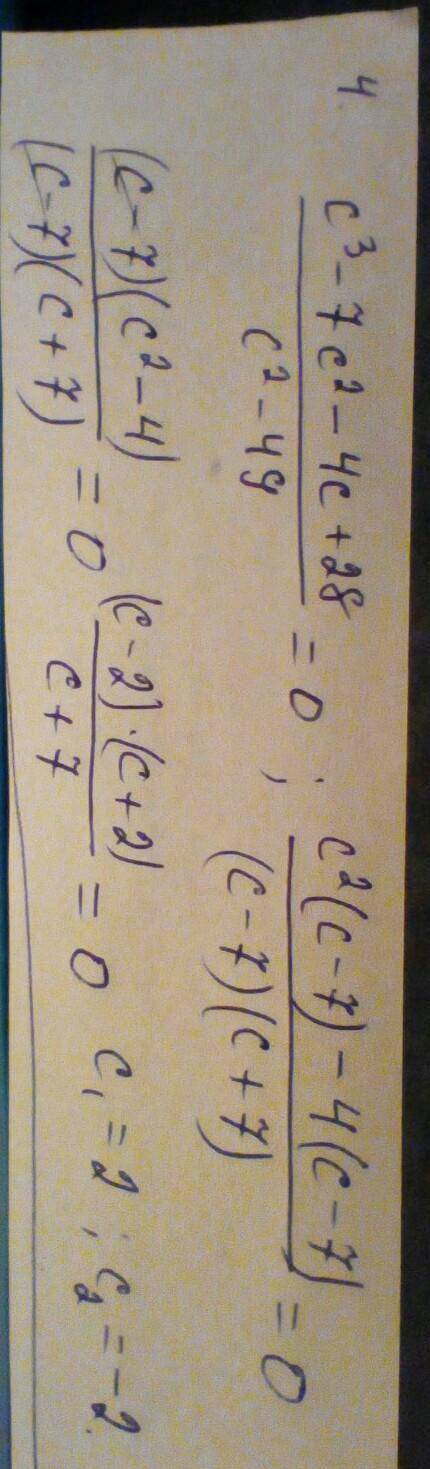 4.
c³-7c²-4c+28 / c²-49 = 0 ; c²(c-7)-4(c-7) / (c-7)(c+7) = 0
(c-7)(c²-4) / (c-7)(c+7) = 0 (c-2)·(c+2) / c+7 = 0 c₁=2 ; c₂=-2.